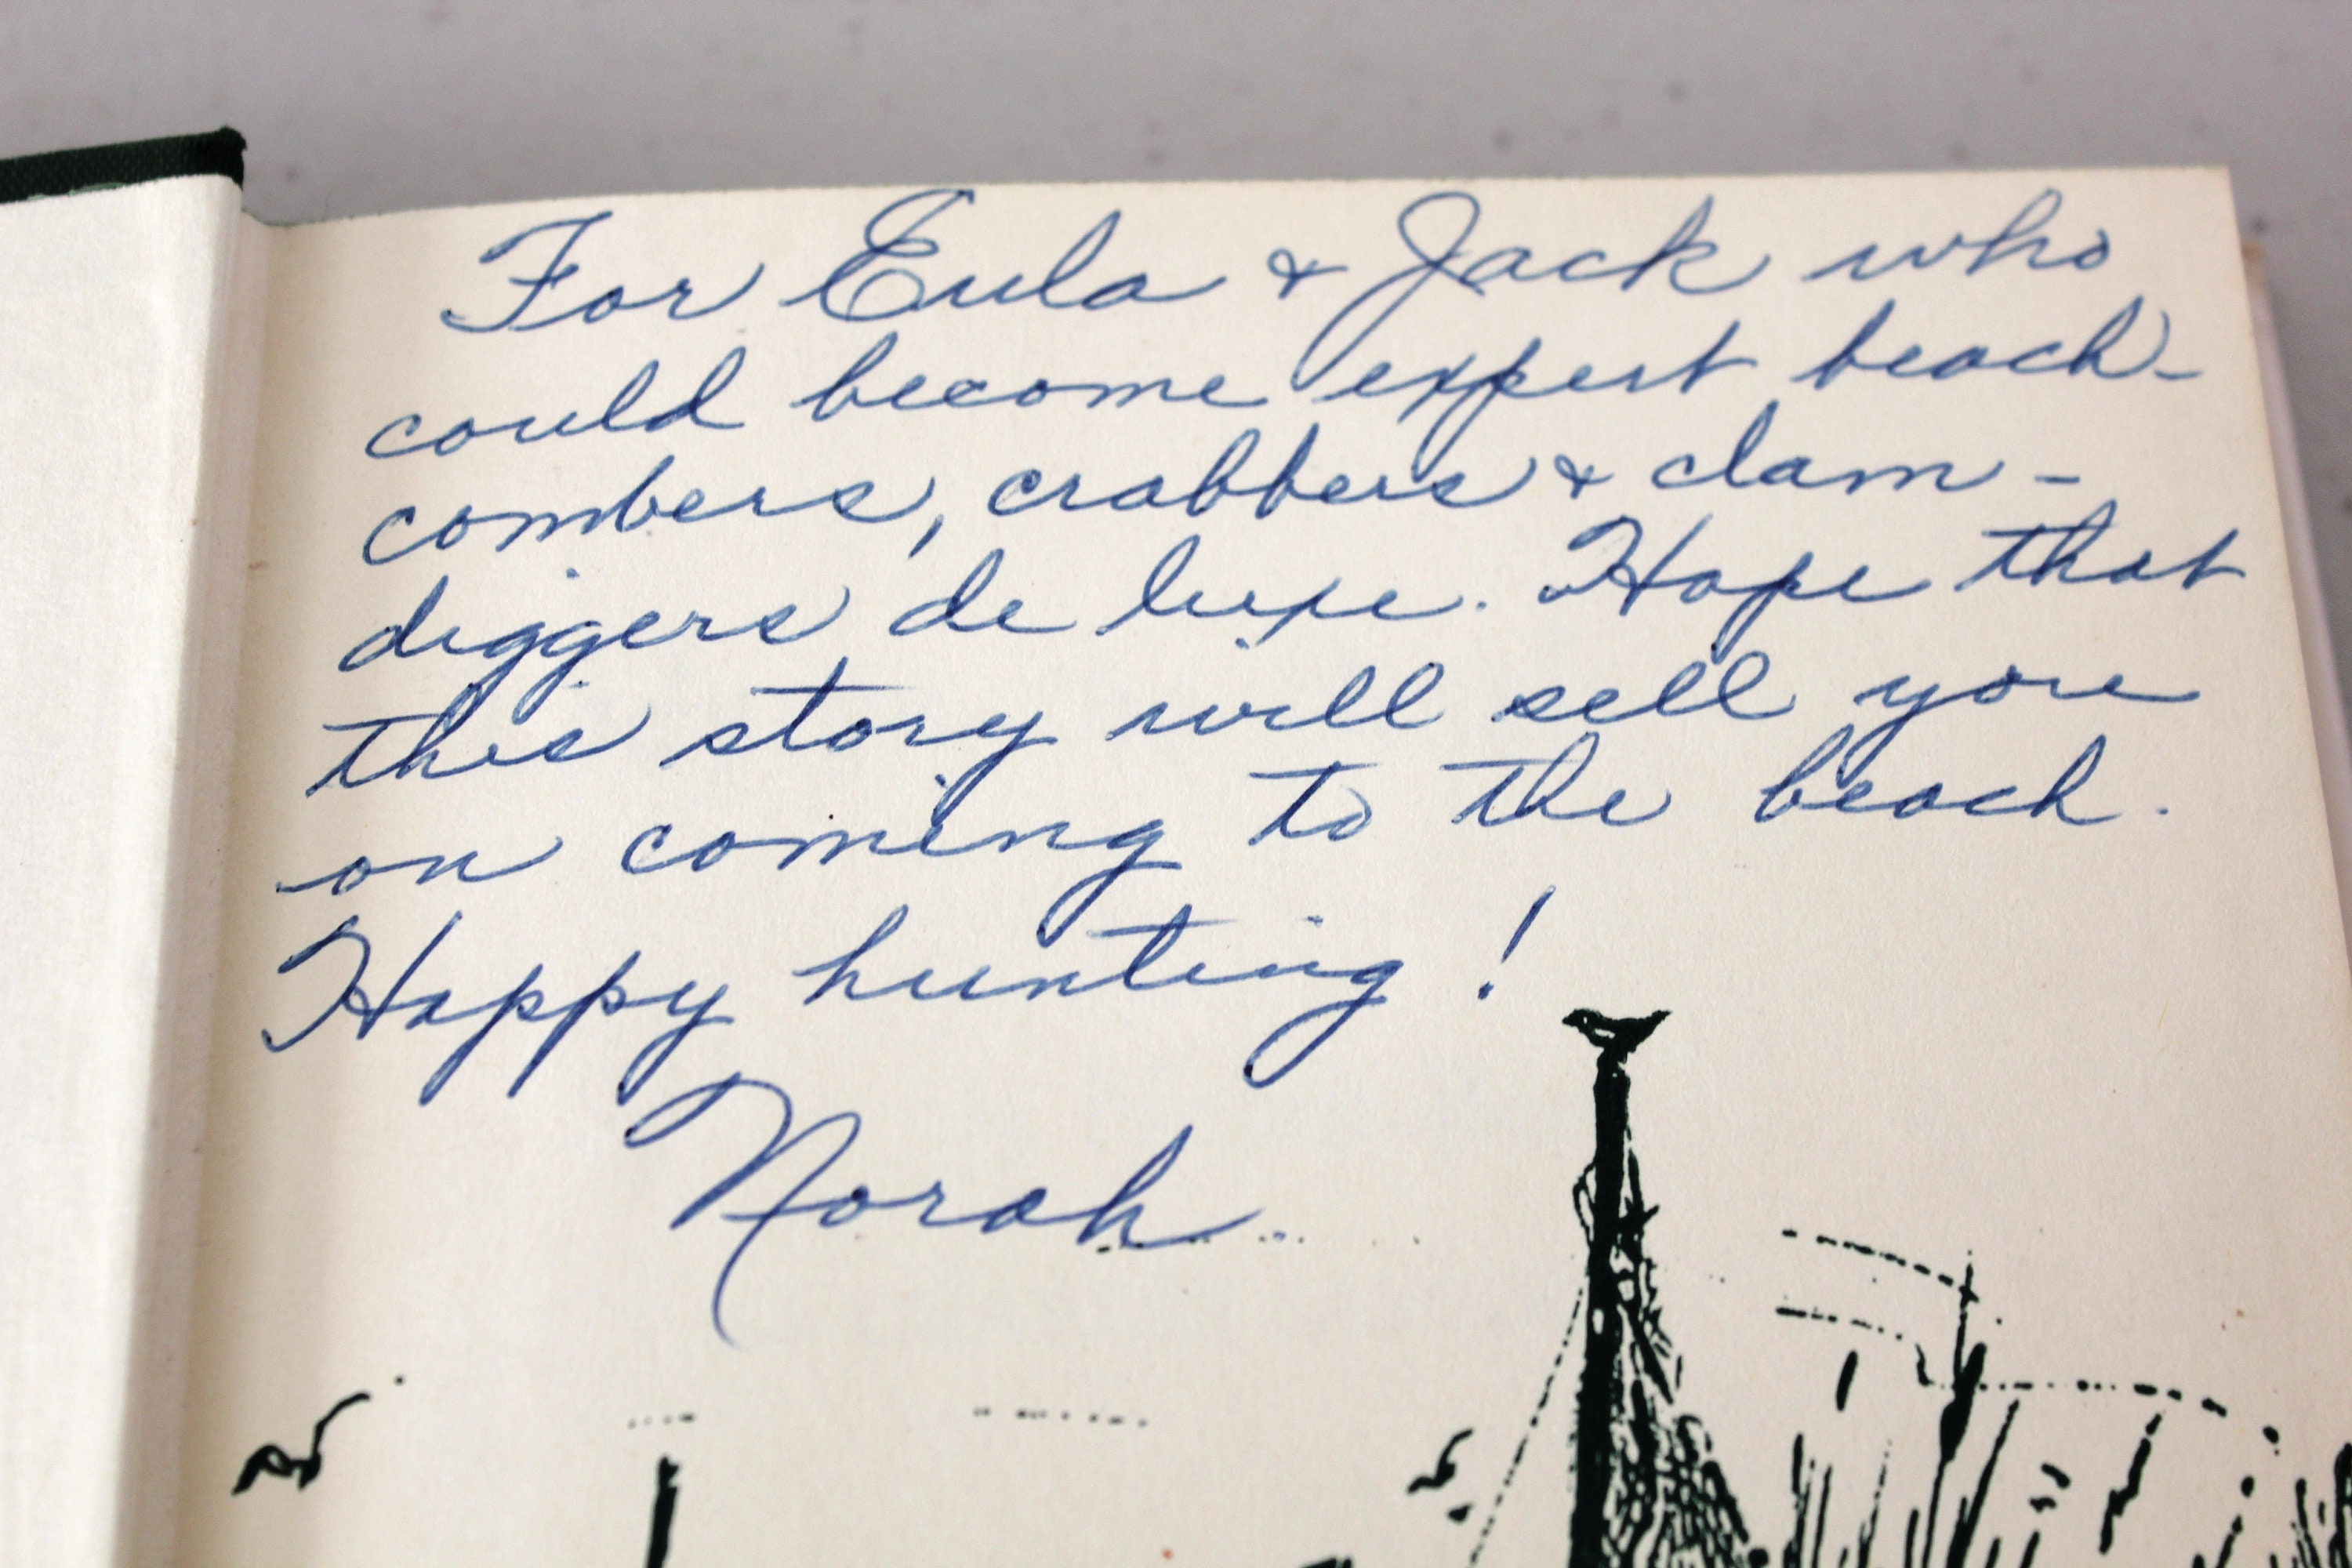 For Eula & Jack who
could become expert beach-
combers, crabbers & clam-
diggers de luxe. Hope that
this story will sell you
on coming to the beach.
Happy hunting!
Norah